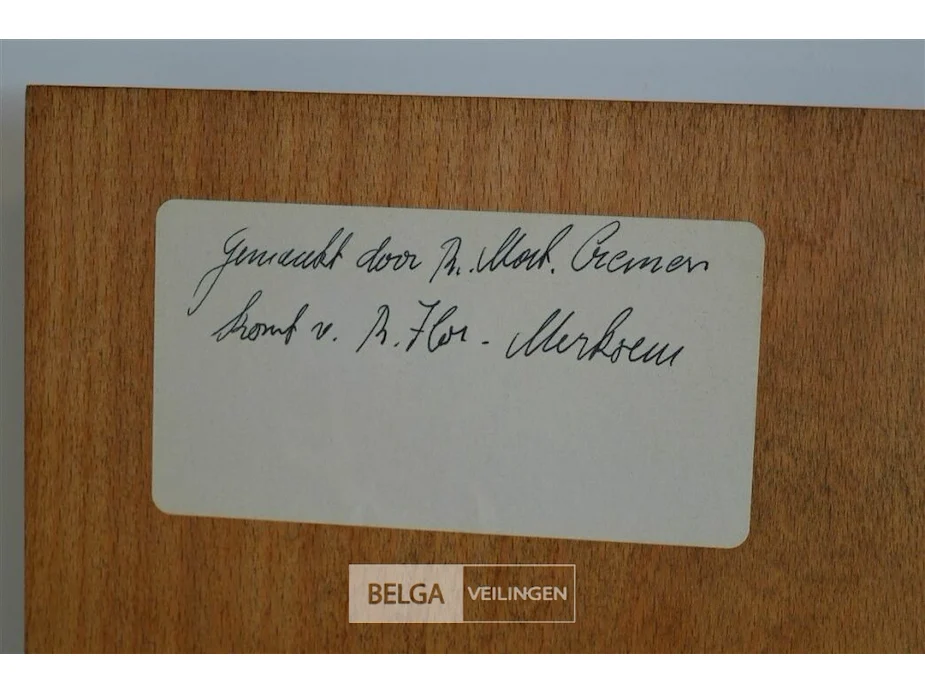 Gemaakt door Br. Mart. Cremers
komt v. Br. Flor. - Merksem
BELGA VEILINGEN